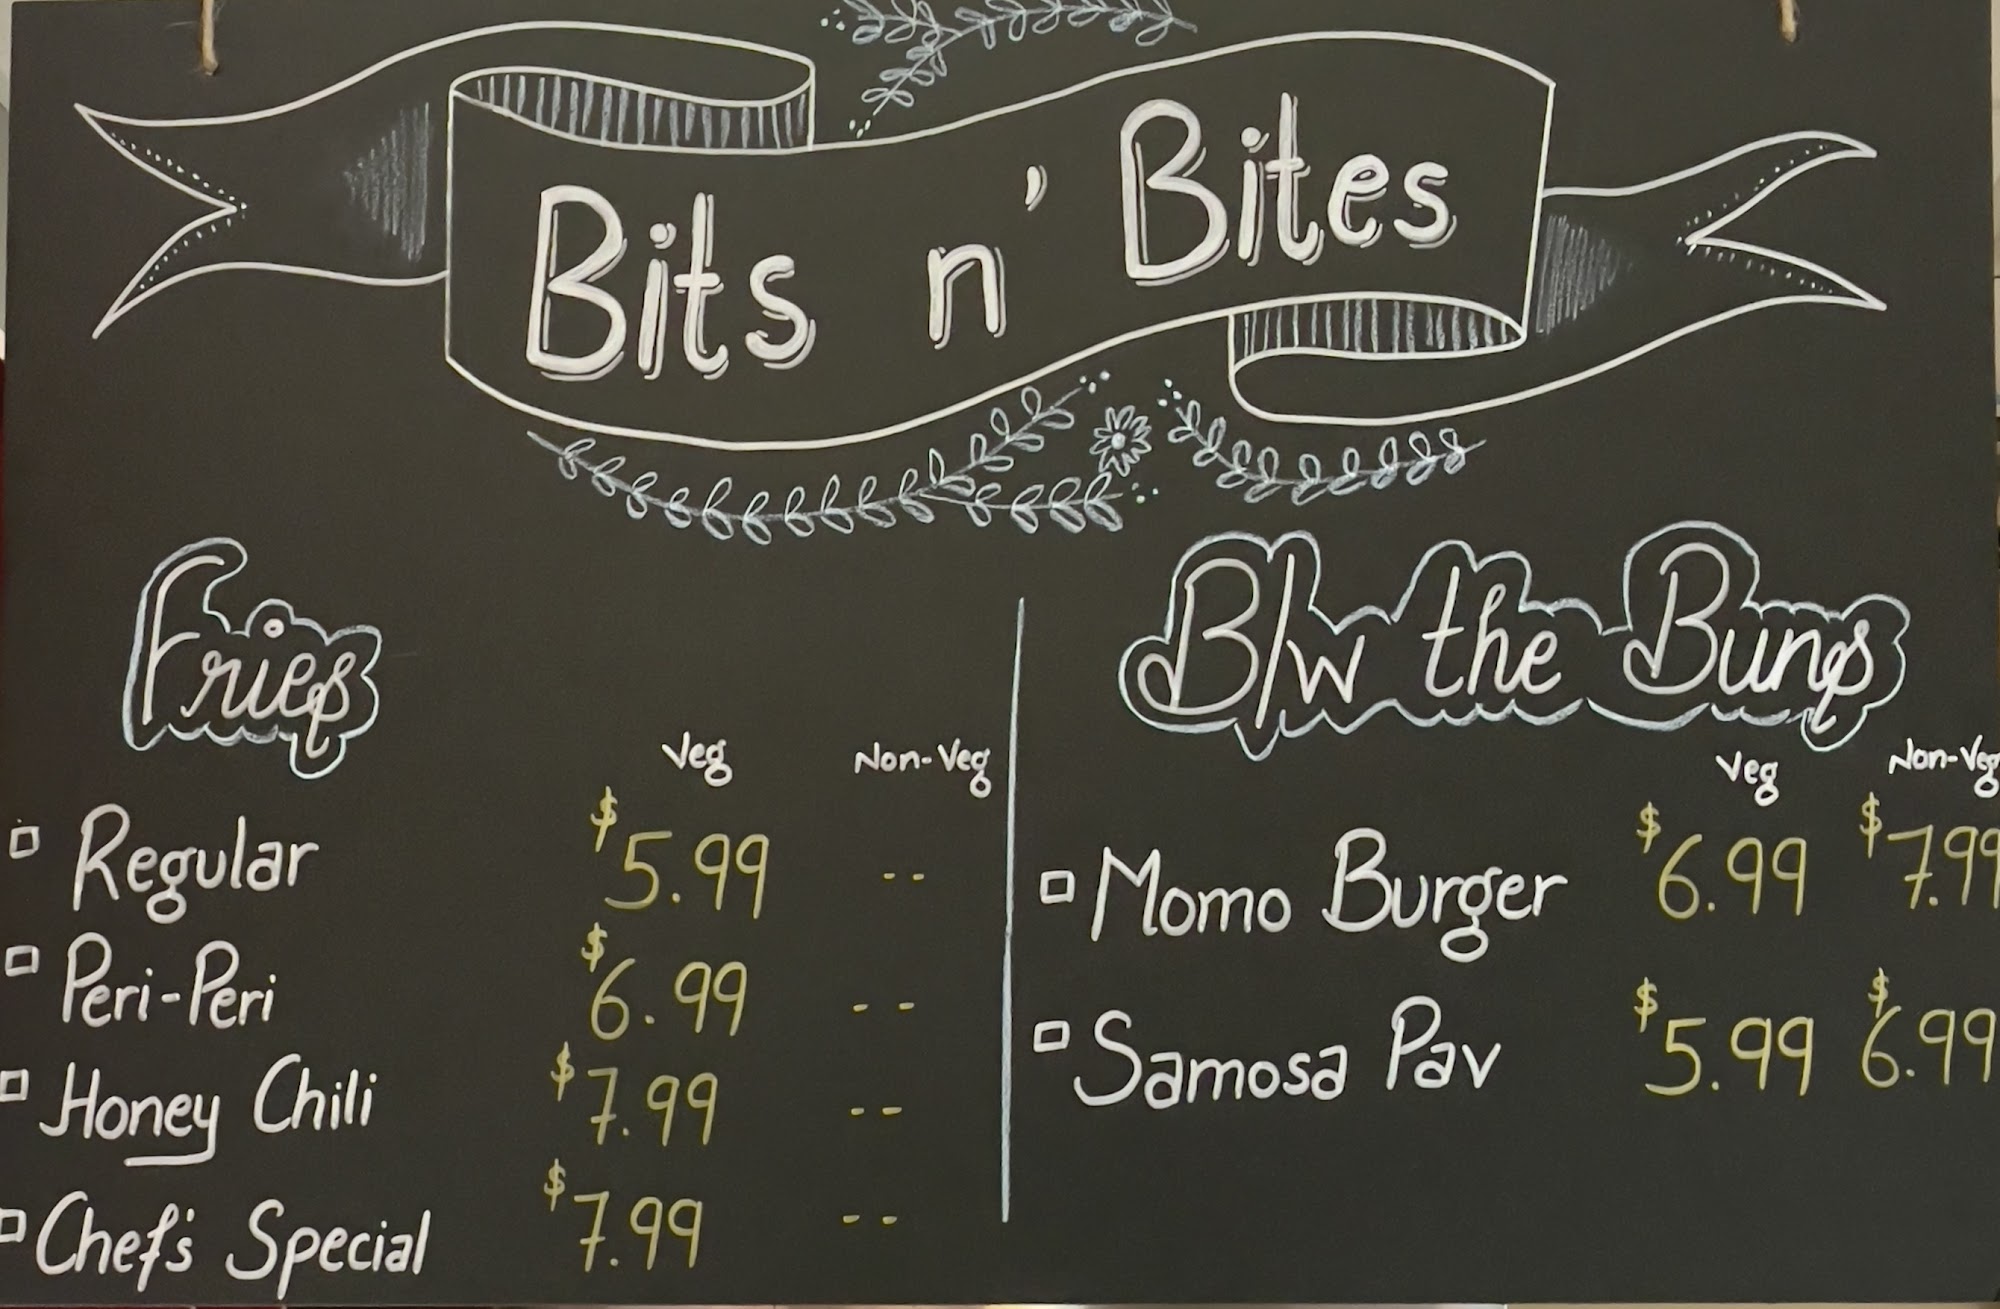 Bits n' Bites
Fries
Veg Non-Veg
Regular $5.99 --
Peri-Peri $6.99 --
Honey Chili $7.99 --
Chef's Special $7.99 --
B/w the Buns
Veg Non-Veg
Momo Burger $6.99 $7.99
Samosa Pav $5.99 $6.99